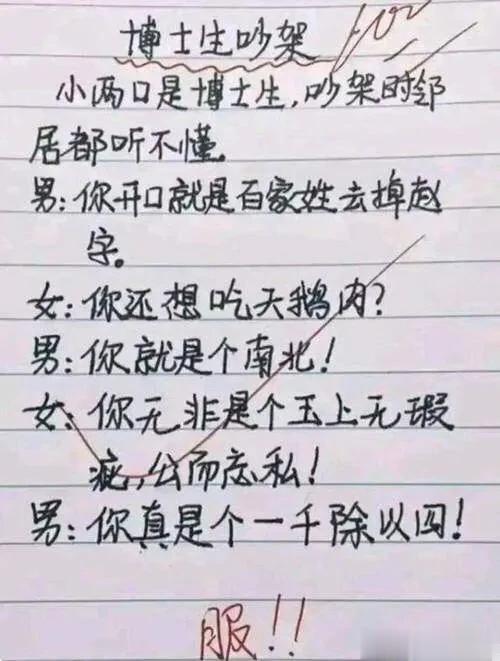 博士生吵架
100
小两口是博士生，吵架时邻
居都听不懂。
男：你开口就是百家姓去掉赵
字。
女：你还想吃天鹅肉？
男：你就是个南北！
女：你无非是个玉上无瑕
疵，公而忘私！
男：你真是个一千除以四！
服！！